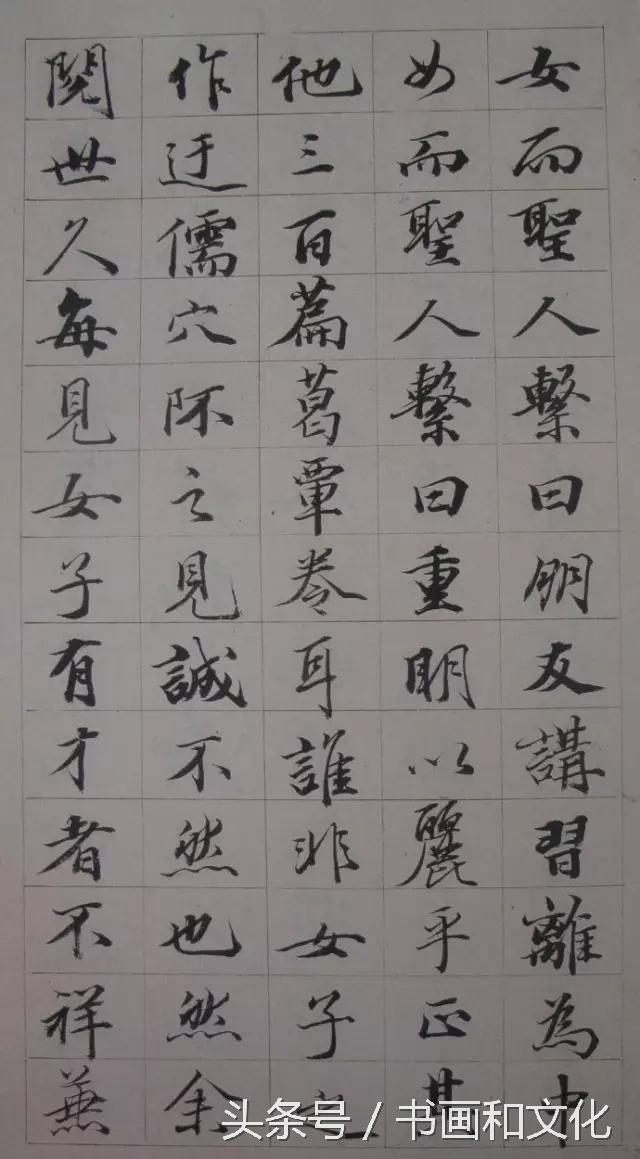 女而聖人繫曰朋友講習離為中
女而聖人繫曰重明以麗乎正其
他三百篇葛覃卷耳誰非女子之
作迂儒穴阫之見誠不然也然余
閱世久每見女子有才者不祥兼
头条号 / 书画和文化